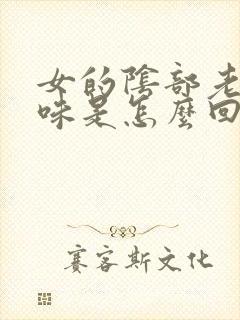 女的陰部老
味是怎麼回
賽客斯文化